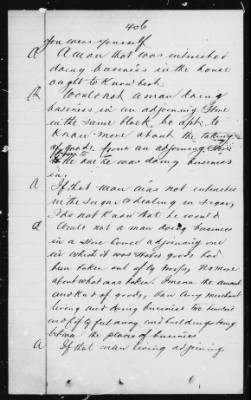 406
you were yourself
A A man that was intrusted
doing business in the house
ought to know best.
Q Would not a man doing
business in an adjoining store
in the same block, be apt to
know more about the taking
of goods from an adjoining store
to the one he was doing business
in.
A If that man was not interested
in the sugar & dealing in sugar,
I do not know that he would
Q Would not a man doing business
in a store located adjoining one
in which it was stated goods had
been taken out of by troops, no more
about what was taken. I mean the amount
and kind of goods, than any merchant
living and doing business two hundred
and fifty feet away and buildings being
between the places of business
A If that man living adjoining